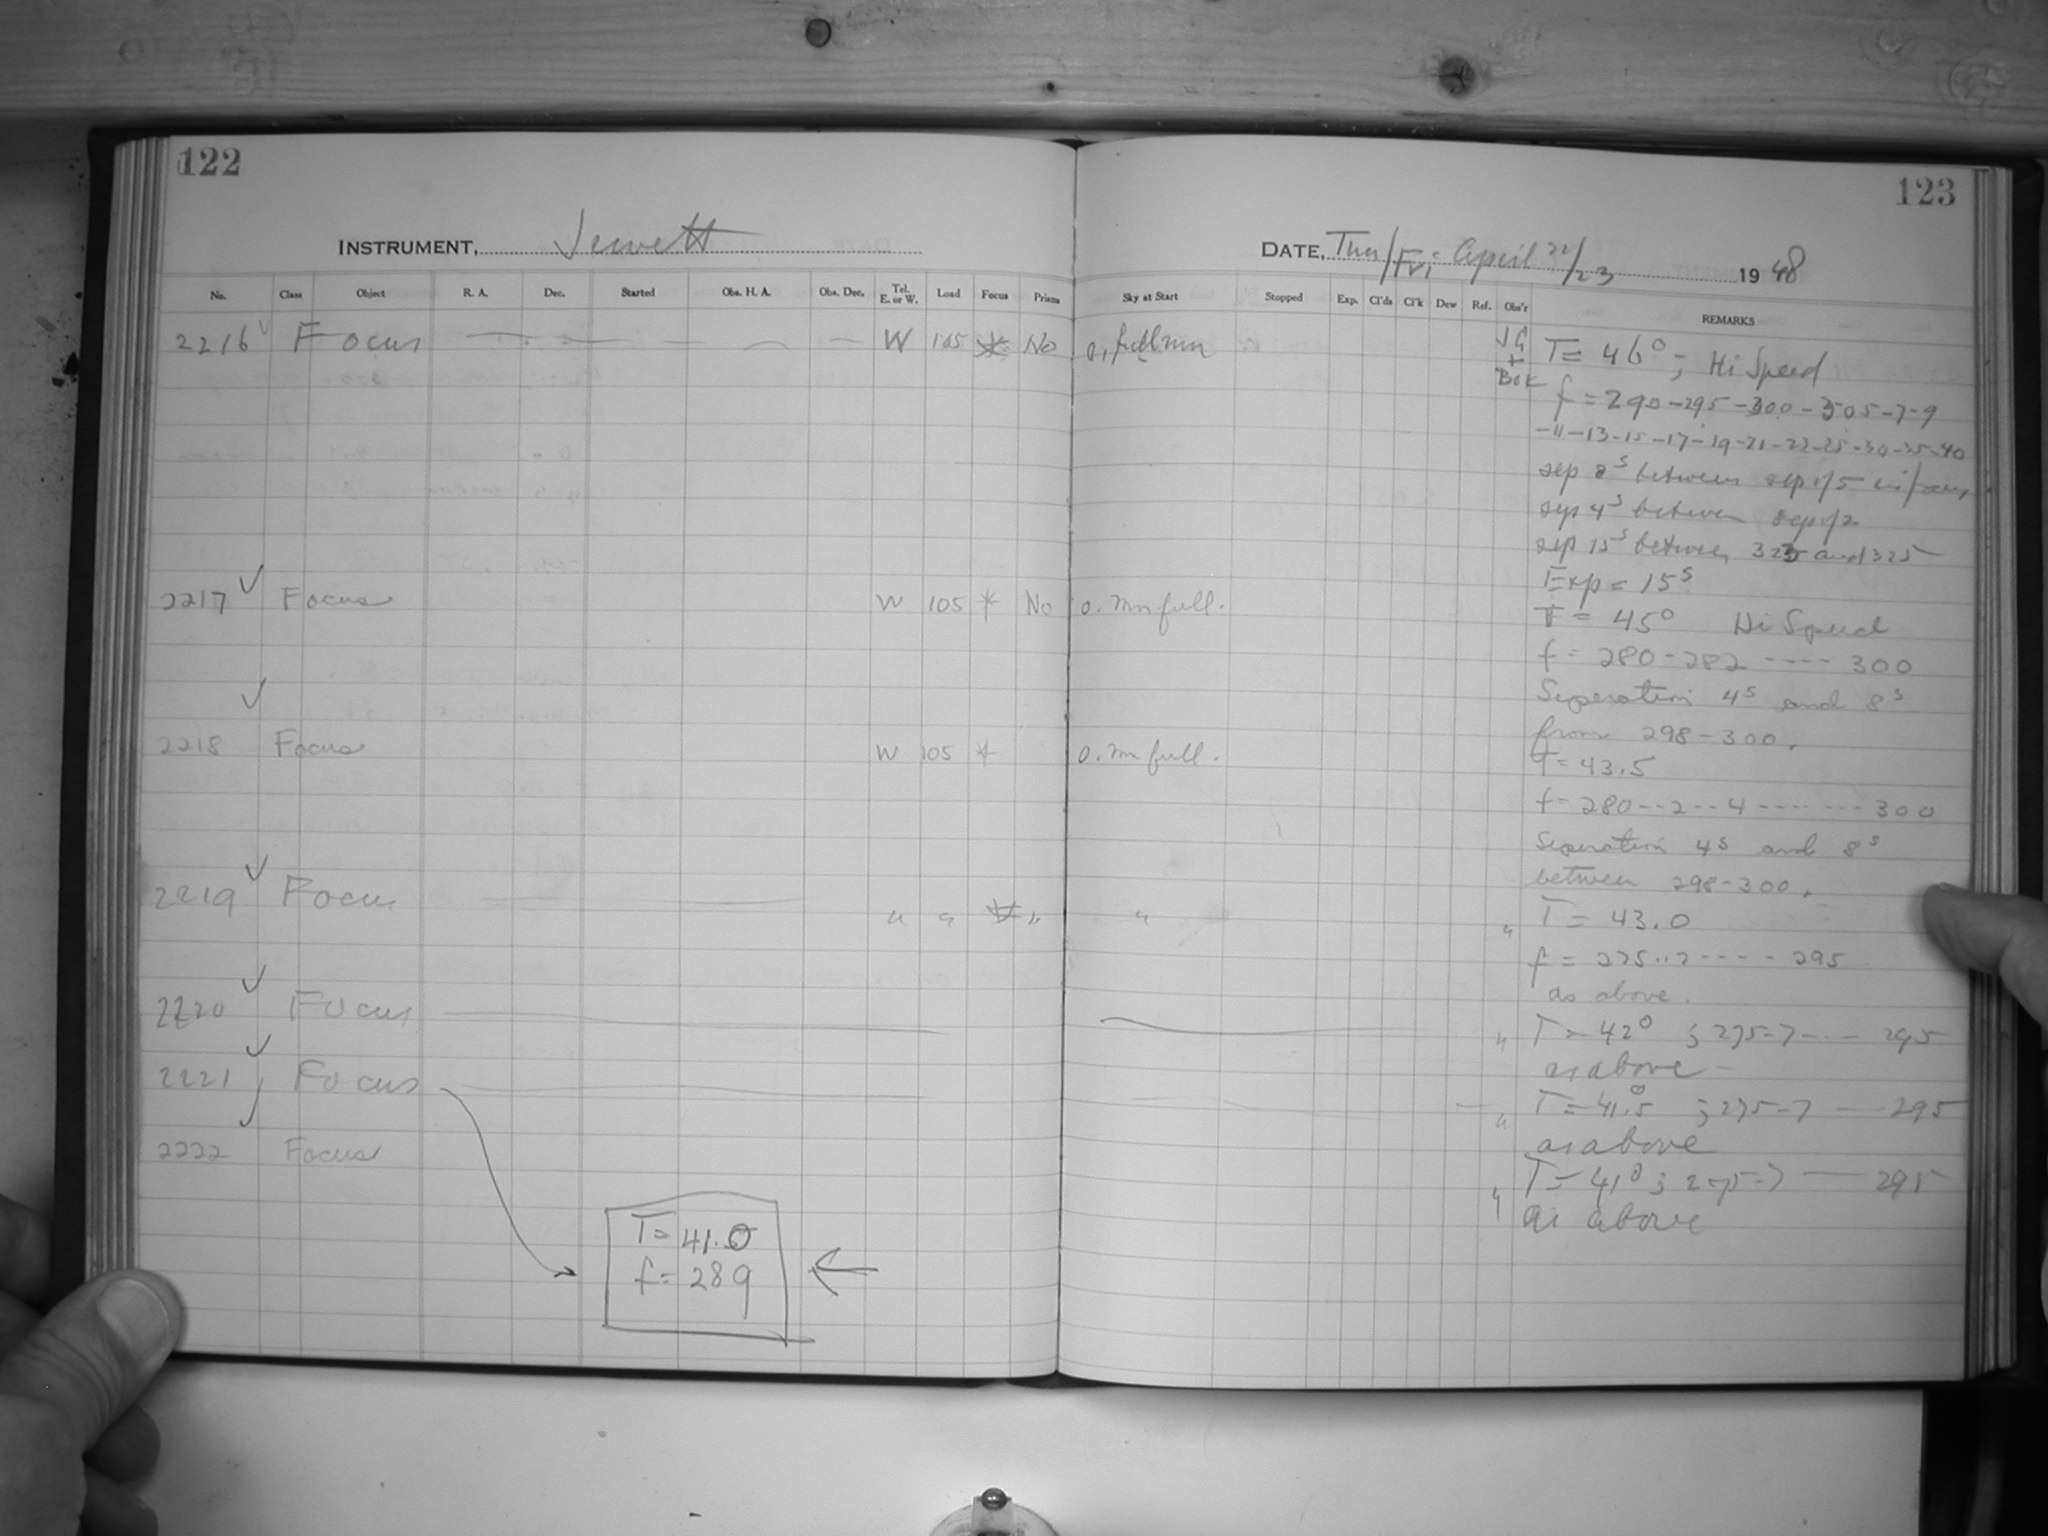 122
123
INSTRUMENT, Jewett
DATE, Thurs/Fri: April 22/23 1948
No. Class Object R. A. Dec. Started Obs. H. A. Obs. Dec. Tel. E. or W. Load Focus Prisms Sky at Start Stopped Exp. Cl'ds Cl'k Dew Ref. Obs'r REMARKS
2216 Focus W 105 No 0, full mn JG + Bok T = 46° ; Hi Speed
f = 290-295-300-305-7-9
-11-13-15-17-19-21-23-25-30-35-40
sep 8s between sep of 5
sep 4s between sep of 2
sep 15s between 323 and 325
Exp = 15s
2217 Focus W 105 * No 0. mn full. T = 45° Hi Speed
f = 280-282 ---- 300
Seperation 4s and 8s
from 298-300.
2218 Focus W 105 * 0. mn full. T = 43.5
f = 280--2--4 ---- --- 300
Seperation 4s and 8s
between 298-300.
2219 Focus " " " " " T = 43.0
f = 275..7---- 295
as above.
2220 Focus " T = 42° ; 275-7--- 295
as above
2221 Focus " T = 41.5° ; 275-7 — 295
as above
2222 Focus " T = 41° ; 275-7 — 295
as above
T = 41.0
f = 289